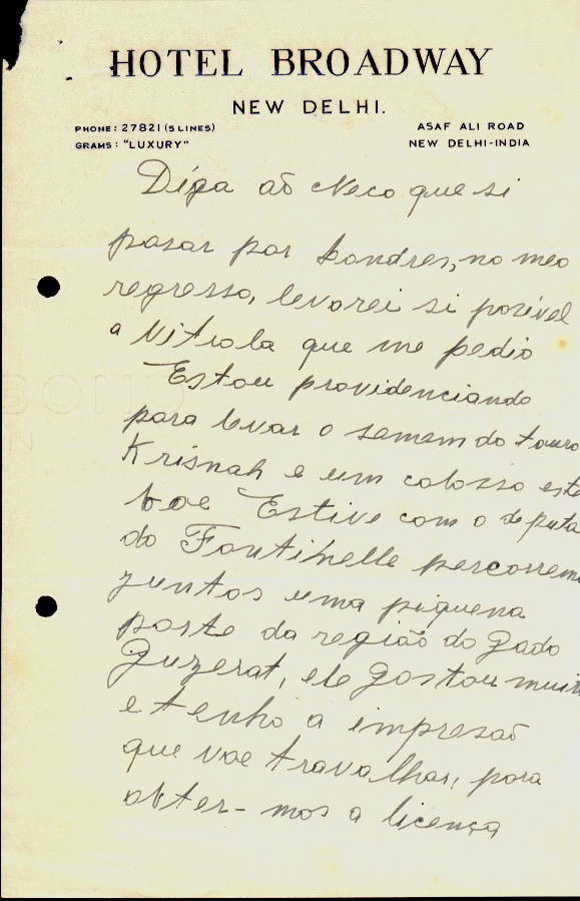 HOTEL BROADWAY
NEW DELHI.
PHONE: 27821 (5 LINES)
GRAMS: "LUXURY"
ASAF ALI ROAD
NEW DELHI-INDIA
Diga aõ Neco que si
pasar por Londres, no meo
regresso, levarei si posivel
a Vitrola que me pedio
Estou providenciando
para levar o semem do touro
Krisnah e um colosso este
boe Estive com o deputa
do Fontinelle percorremo
juntos uma piquena
parte da região do gado
Guzerat, ele gostou muit
e tenho a impresaõ
que vae travalhar, para
obter-mos a licença